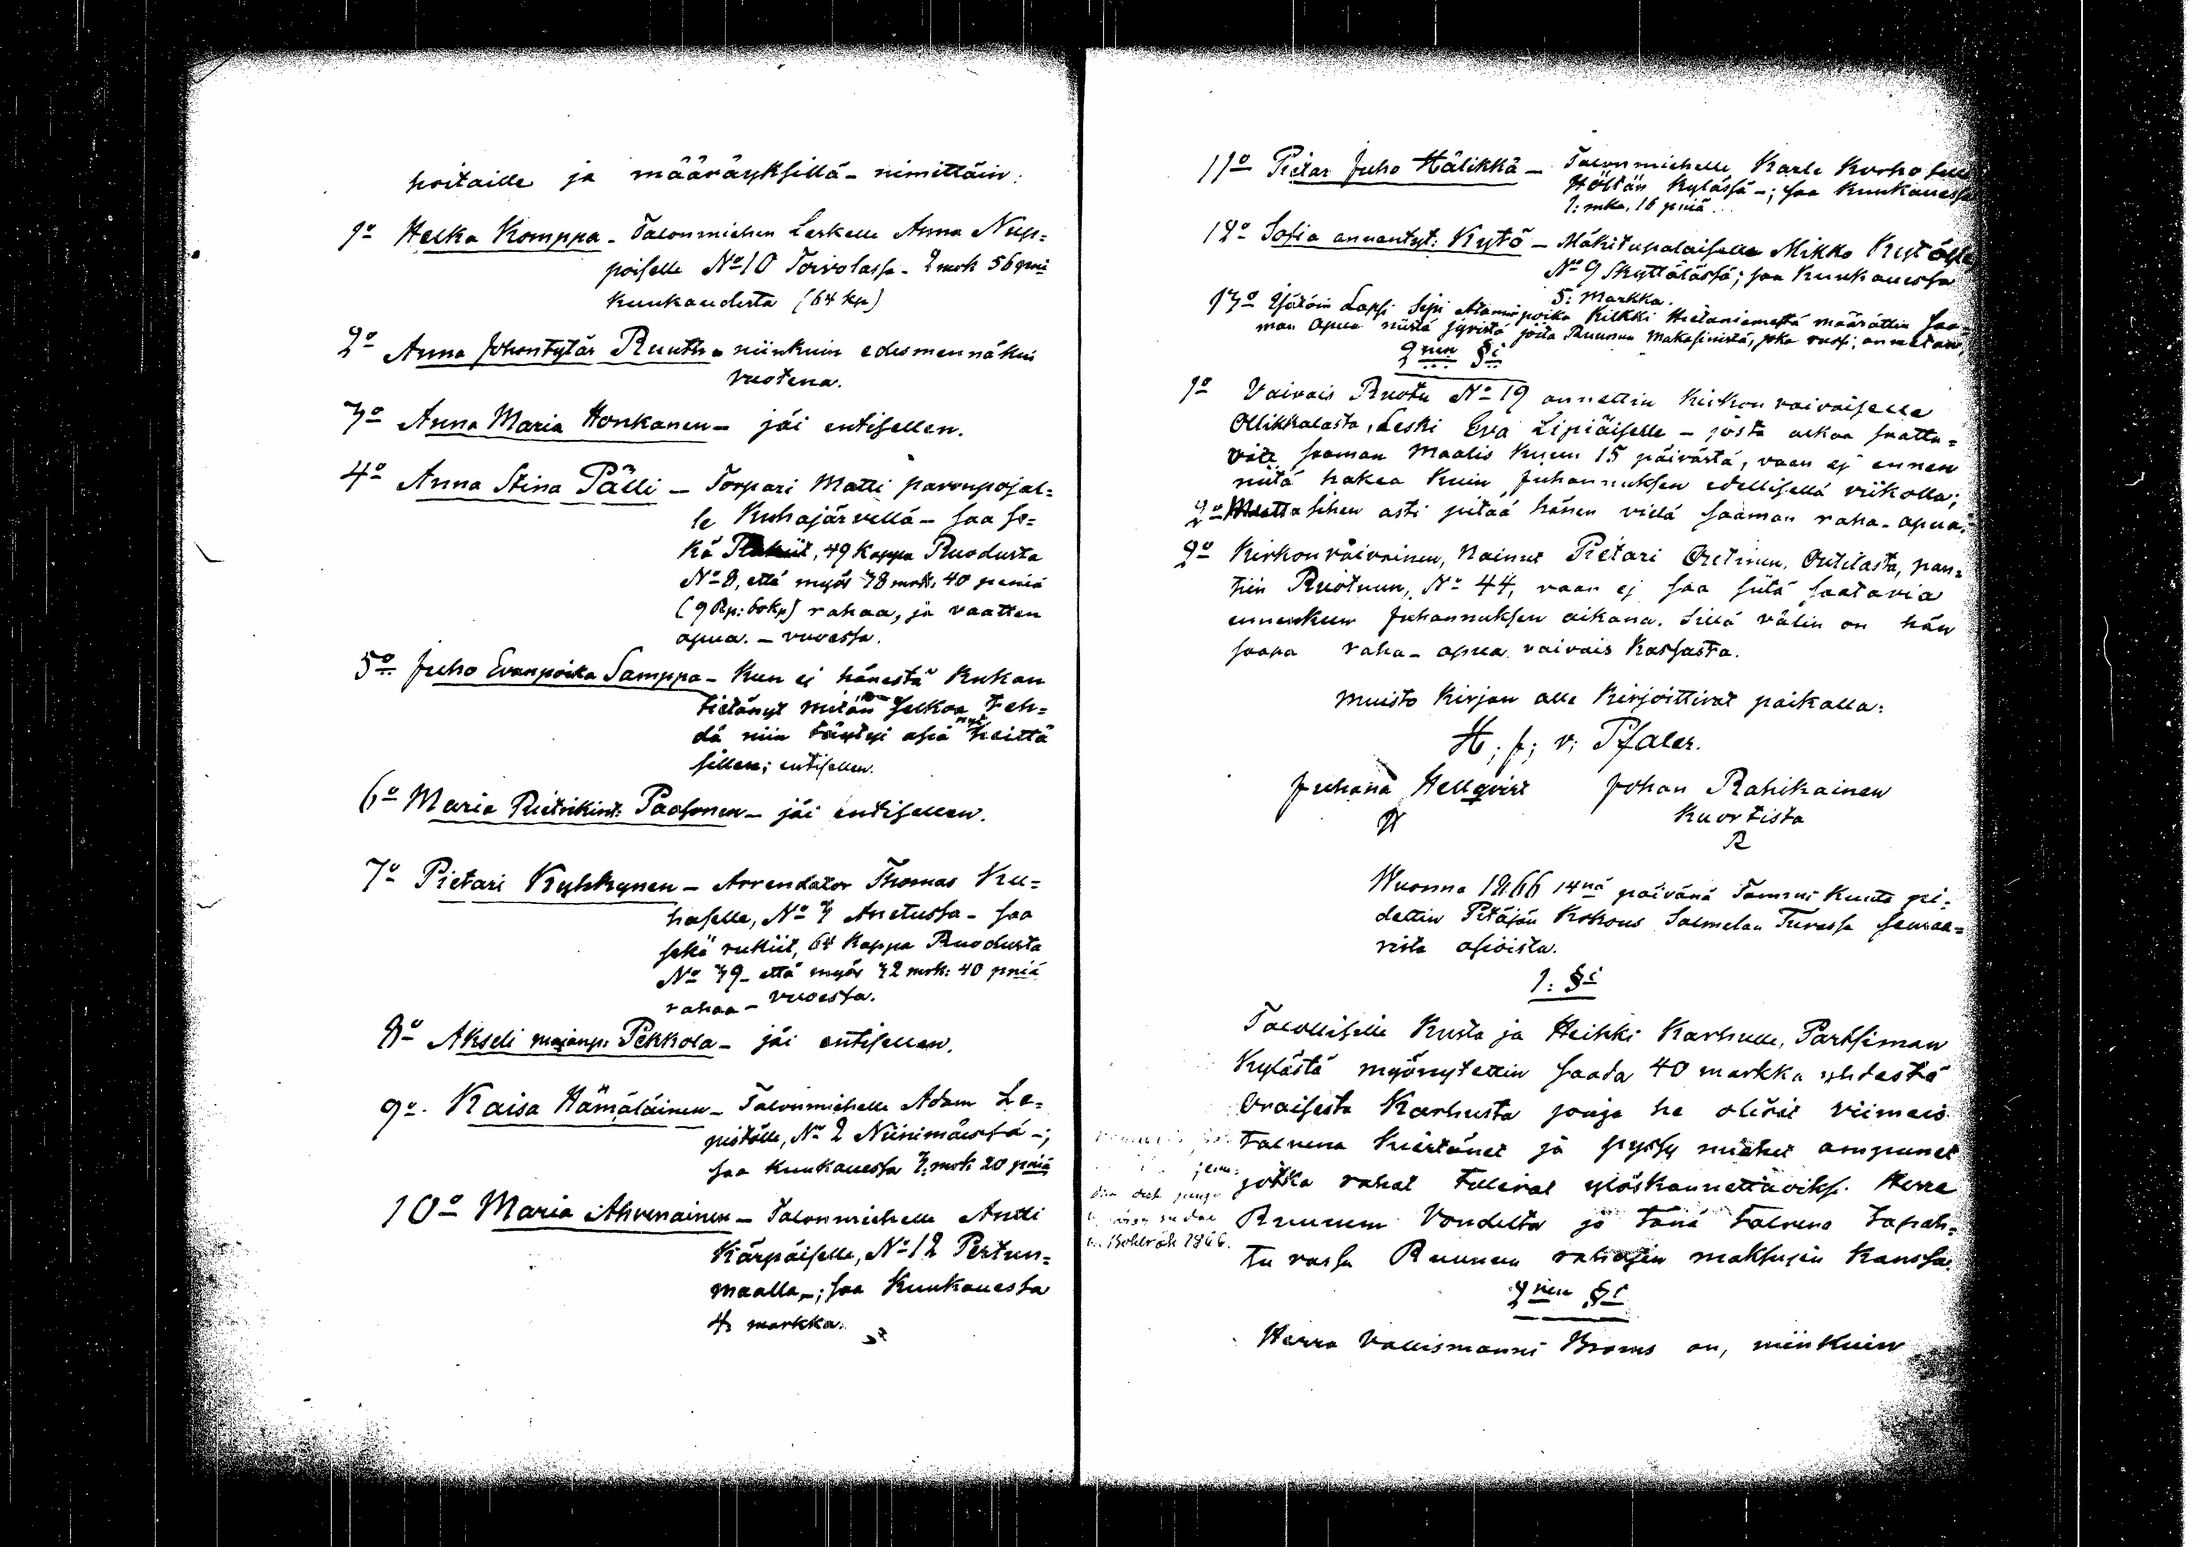 hoitaille ja määräyksillä - nimittäin:
1o Helka Komppa - Talonmiehen Leskelle Anna Nup=
poiselle No 10 Toivolassa - 2 mrk 56 pniä
kuukaudesta (64 kp)
2o Anna Johantytär Ruuth - niinkuin edesmennäkin
vuotena.
3o Anna Maria Honkanen - jäi entisellen.
4o Anna Stina Pälli - Torpari Matti paronpojal=
le Kuhajärvellä - saa se=
kä , 49 Kappa Ruodusta
No 8, että myös 38 mrk: 40 peniä
(9 Rp: 60 kp) rahaa, ja vaatten
apua. - vuoessa.
5o Juho Evanpoika Samppa - Kun ei hänestä Kukan
tietänyt mitän selkoa teh=
dä niin täytyi asia nyt heittä
sillen; entisellen.
6o Maria Paasonen - jäi entisellen.
7o Pietari Kyhkynen - Arrendator Thomas Ku=
haselle, No 3 Anetussa - saa
sekä rukiit, 64 Kappa Ruodusta
No 39 - että myös 32 mrk: 40 pniä
rahaa - vuoessa.
8o Akseli majanp: Pekkola - jäi entisellen.
9o. Kaisa Hämäläinen - Talonmiehelle Adam Le=
pistölle, No 2 Niinimäessä -;
saa kuukauessa 3: mrk 20 pniä
10o Maria Ahvenainen - Talonmiehelle Antti
Kärpäiselle, No 12 Pertun=
maalla -; saa Kuukauessa
4: markka.
11o Pietar Juho Hälikkä - Talonmiehelle Karle Korho selle
Höltän Kylässä -; saa Kuukauessa
1: mka, 16 pniä.
12o Sofia annantyt: Kytö - Mäkitupalaiselle Mikko Kytölle
No 9 Skyttälässä; saa Kuukauessa
5: Markka.
13o Isätöin Lapsi Adamin poika Kilkki Hietaniemestä määrättin saa=
man apua niistä jyvistä joita Ruunun Makasinista, joka vuosi, annetan,
2nen §i
1o Vaivais Ruotu No 19 annettin Kirkon vaivaiselle
Ollikkalasta, Leski Eva Lipiäiselle - josta alkaa saatta=
via saaman Maalis Kuun 15 päivästä, vaan ej ennen
niitä hakea Kuin Juhannuksen edellisellä viikolla;
Mutta siihen asti pitää hänen vielä saaman raha-apua;
2o Kirkon väivainen, Nainut Pietari Ortinen, Outilasta, pan=
tiin Ruotuun, No 44, vaan ej saa siitä saatavia
ennenkuin Juhannuksen aikana. Sillä välin on hän
saapa raha-apua vaivais Kassasta.
Muisto Kirjan alle Kirjoittivat paikalla:
H; f; v; Pfaler.
Juhana Hellqvist Johan Rahikainen
Kuortista
R
Wuonna 1866 14nä päivänä Tammi Kuuta pi=
dettin Pitäjän Kokous Salmelan Tuvassa seuraa=
vista asioista.
1: §i
Talollisille Kusta ja Heikki Karhulle, Parttiman
Kylästä myönnytettin saada 40 markka yhdestä
Oraisesta Karhusta jonga he olisit viimeis
talvena Kiertänet ja pyssy miehet ampunet
jotka rahat tulevat ylöskannettäviksi Herra
Ruunun Voudelta jo tänä talvena tapah=
tu vassa Ruunun rahojen maksujen Kanssa.
1866.
2nen §i
Herra Vallesmanni Broms on, niinkuin